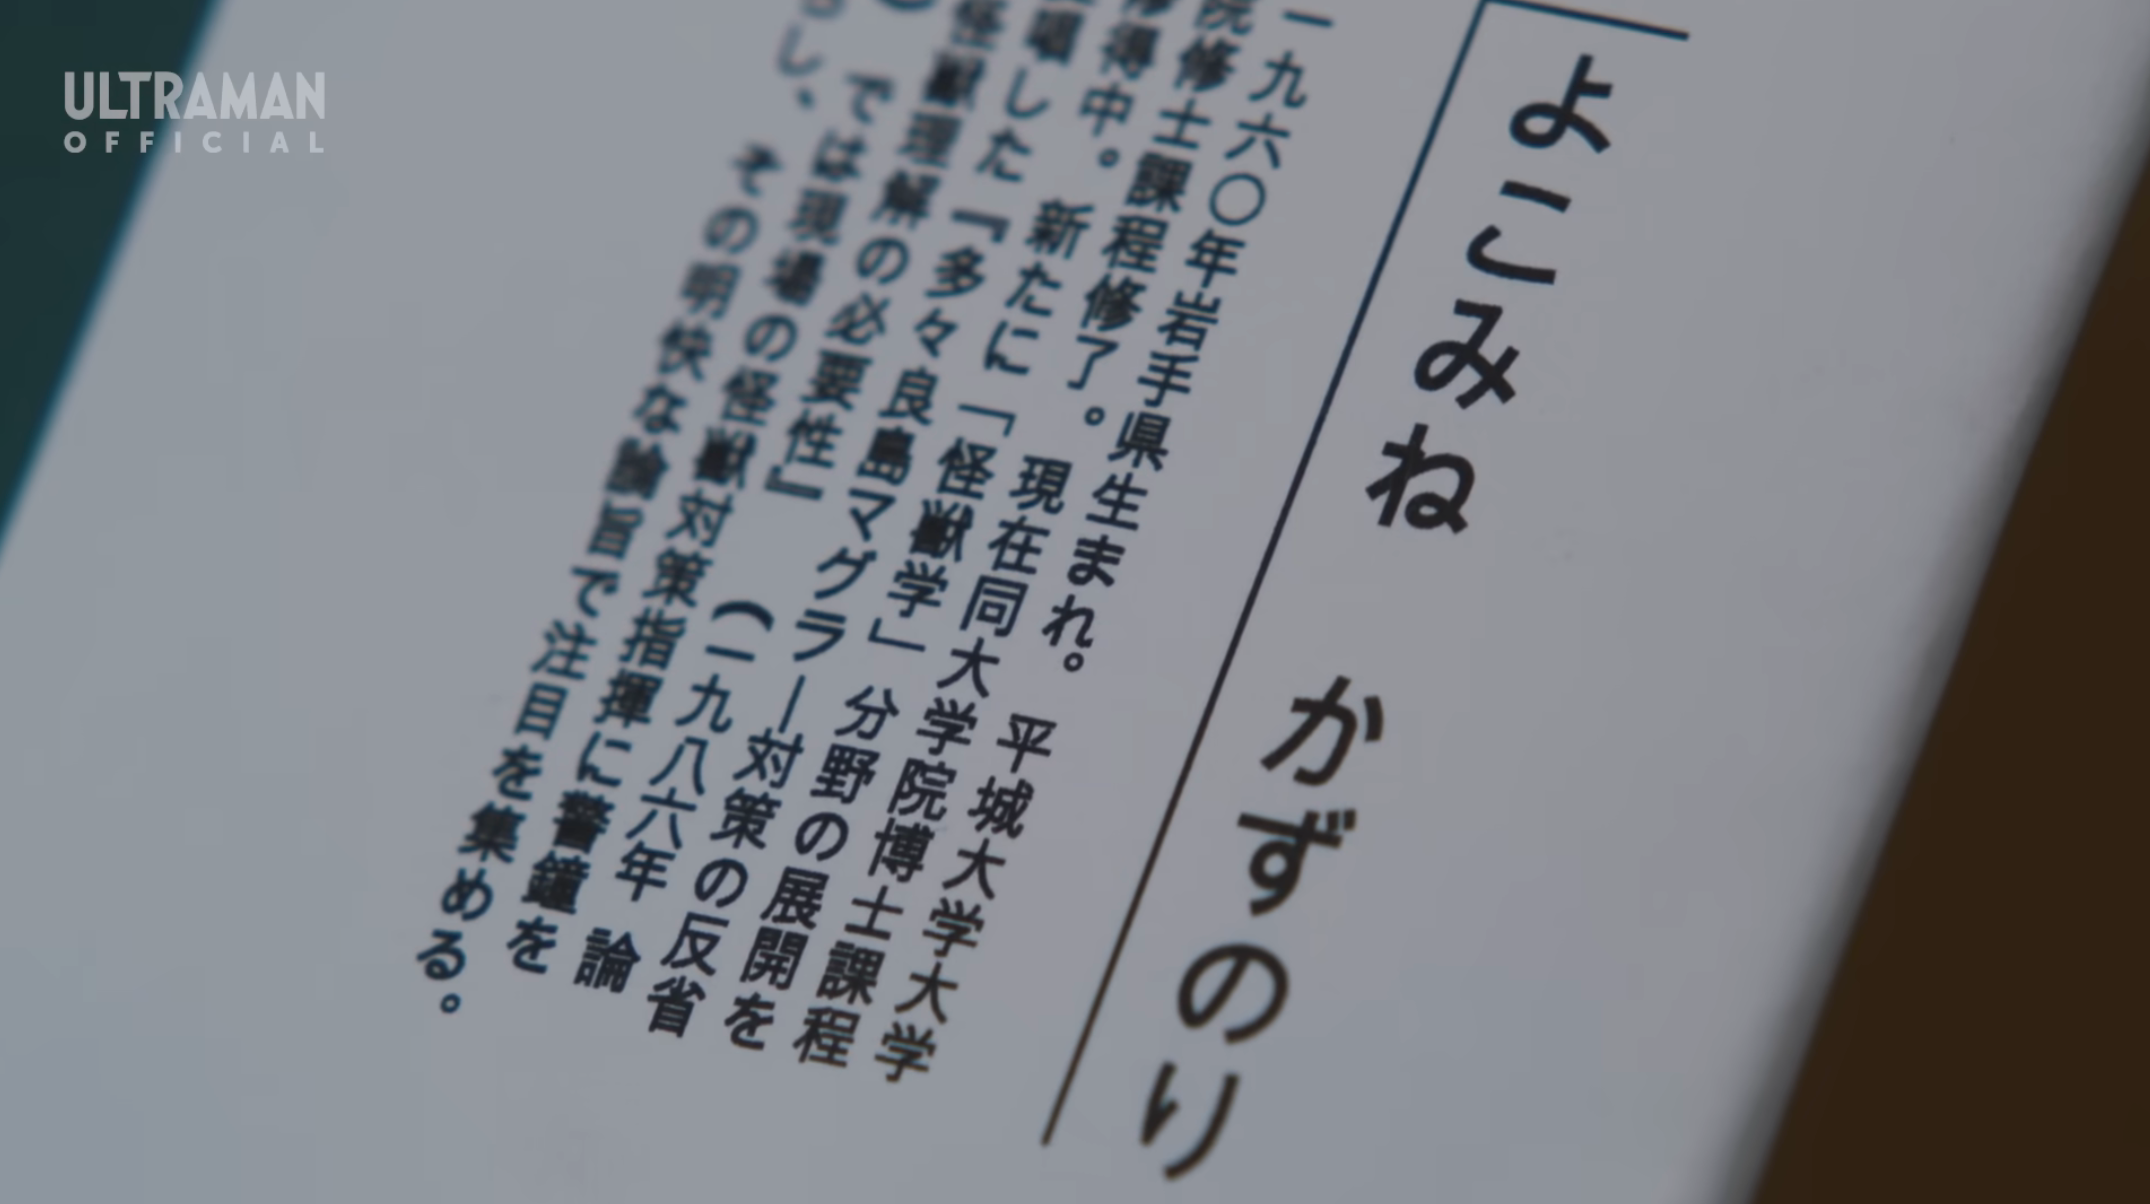 ULTRAMAN
OFFICIAL
よこみね かずのり
一九六〇年岩手県生まれ。平城大学大学
院修士課程修了。現在同大学院博士課程
修得中。新たに「怪獣学」分野の展開を
唱した『多々良島マグラー対策の反省
怪獣理解の必要性』(一九八六年 論
)では現場の怪獣対策指揮に警鐘を
らし、その明快な論旨で注目を集める。